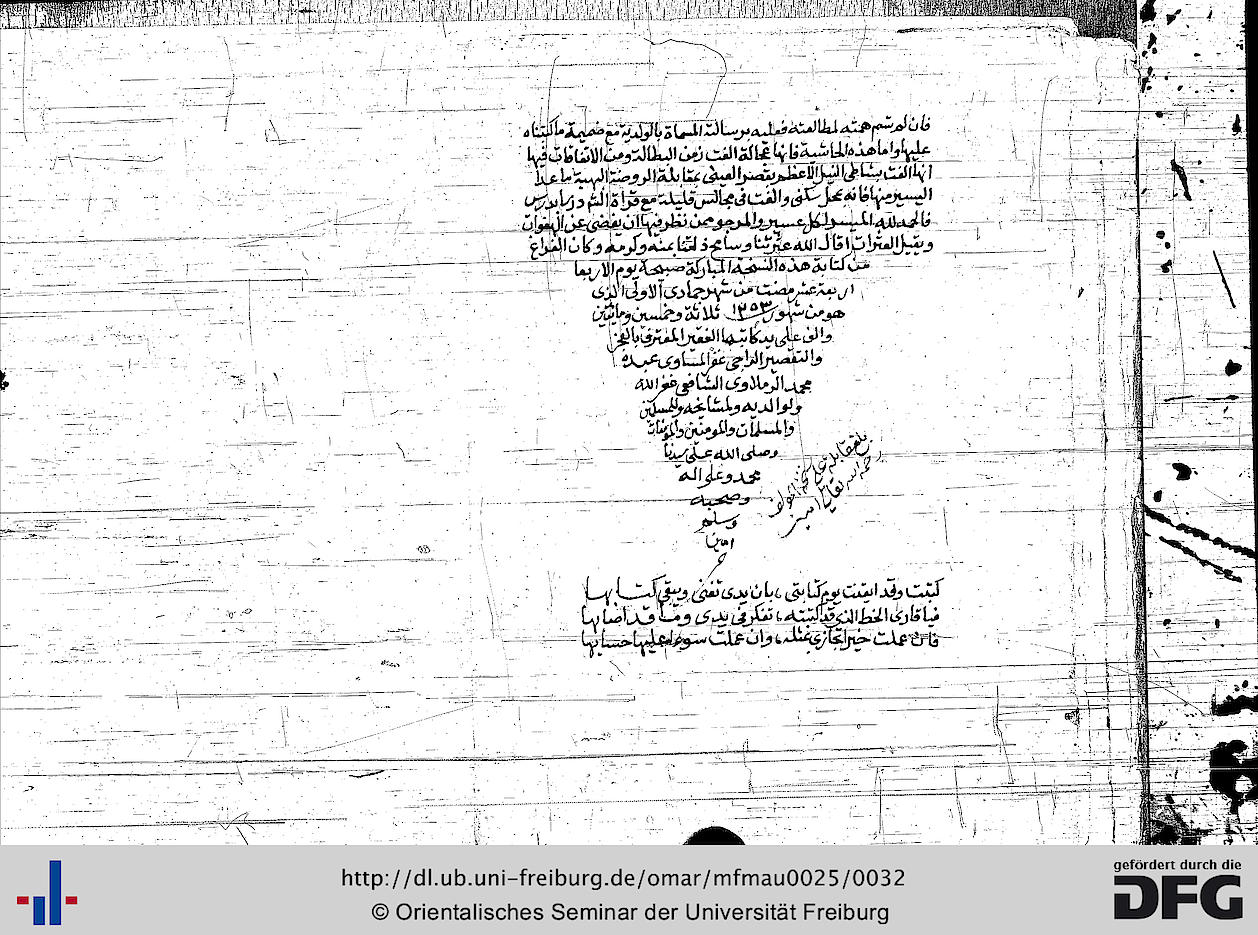 فان لم تسم همته لمطالعته فعليه برسالته المسماة بالولدية مع ضميمة ما كتبناه
عليها واما هذه الحاشية فانها عجالة الفت زمن البطالة ومن الاتفاقات فيها
انها الفت بشاطئ النيل الاعظم بقصر العينى بمقابلة الروضة البهية ما عدا
اليسير منها فانه بمحل سكنى والفت فى مجالس قليلة مع قراة
فالحمد لله الميسر لكل عسير والمرجو ممن نظر فيها ان يغضى عن الهفوات
ويقيل العثرات اقال الله عثرتنا وسامح زلتنا بمنه وكرمه وكان الفراغ
من كتابة هذه النسخة المباركة صبيحة يوم الاربعا
اربعة عشر مضت من شهر جمادى الاولى الذى
هو من شهور ١٢٥٣ ثلاثة وخمسين ومايتين
والف على يد كاتبها الفقير المعترف بالعجز
والتقصير الراجى غفر المساوى عبده
محمد الرملاوى الشافعى غفر الله
ولوالديه ولمشايخه وللمسلمين
والمسلمات والمومنين والمومنات
وصلى الله على سيدنا
محمد وعلى اله
وصحبه
وسلم
امين
بلغ مقابلة على نسخة المولف
رحمه الله تعالى امين
كتبت وقد ايقنت يوم كتابتى ، بان يدى تفنى ويبقى كتابها
فيا قارى الخط الذى قد كتبته ، تفكر فى يدى وما قد اصابها
فان عملت خيرا تجازى بمثله ، وان عملت سوءا عليها حسابها
http://dl.ub.uni-freiburg.de/omar/mfmau0025/0032
© Orientalisches Seminar der Universität Freiburg
gefördert durch die
DFG